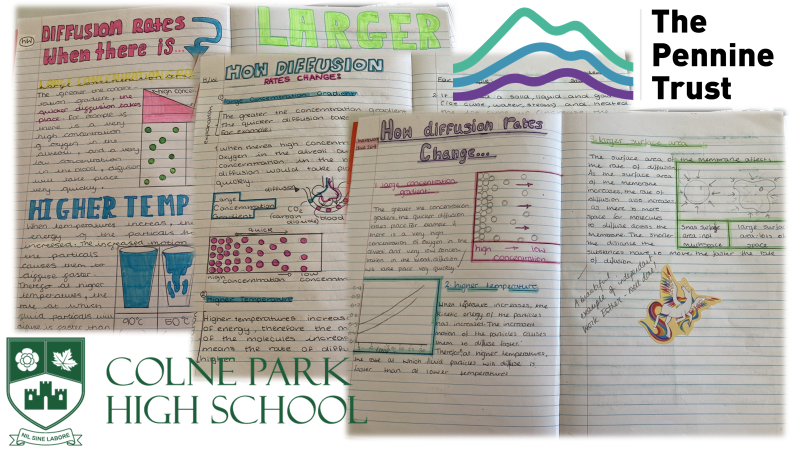 HW
DIFFUSION RATES
When there is...
LARGER
The
Pennine
Trust
HOW DIFFUSION
RATES CHANGE?
Large Concentration Gradient
The greater the concentration gradient
the quicker diffusion takes
for example:
1. When there's high
oxygen in the alveoli
concentration in the
diffusion would take
quickly.
Large
Concentration
Gradient
diffusion
CO2
(carbon
dioxide)
blood
quick
high
concentration
low
concentration
Higher Temperature
Higher temperatures increase
of energy, therefore the
of the molecules increase
means the rate of
higher.
quicker diffusion takes
place. For example if
there is a very
high concentration
of oxygen in the
alveoli, and a very
low concentration
in the blood, diffusion
will take place
very quickly.
HIGHER TEMP
When temperatures increase, the
energy the particals
increased. The increased motion
the particals
causes them to
diffuse faster.
Therefor at higher
temperatures, the
rate at which
fluid particals will
diffuse is faster than
90°C
50°C
How diffusion rates
Change...
1. large concentration
gradient
The greater the concentration
gradient, the quicker diffusion
takes place. For example if
there is a very high
concentration of oxygen in the
alveoli and very low concen-
tration in the blood, diffusion
will take place very quickly.
high → low
concentration
2. higher temperature
When temperature increases, the
kinetic energy of the particles
has increased. The increased
motion of the particles causes
them to diffuse faster.
Therefor at higher temperatures,
the rate at which fluid particles will diffuse is
faster than at lower temperatures
3. larger surface area
The surface area of the membrane affects
the rate of diffusion.
As the surface
area of the
membrane
increases, the rate
of diffusion also increases
as there is more
space for molecules
to diffuse across the
membrane. The shorter
the distance the
substances have to move, the faster the rate
of diffusion
small surface
area not
much space
large surface
area lots of
space
A beautiful
example of independent
work Esther - well done!
NIL SINE LABORE
COLNE PARK
HIGH SCHOOL